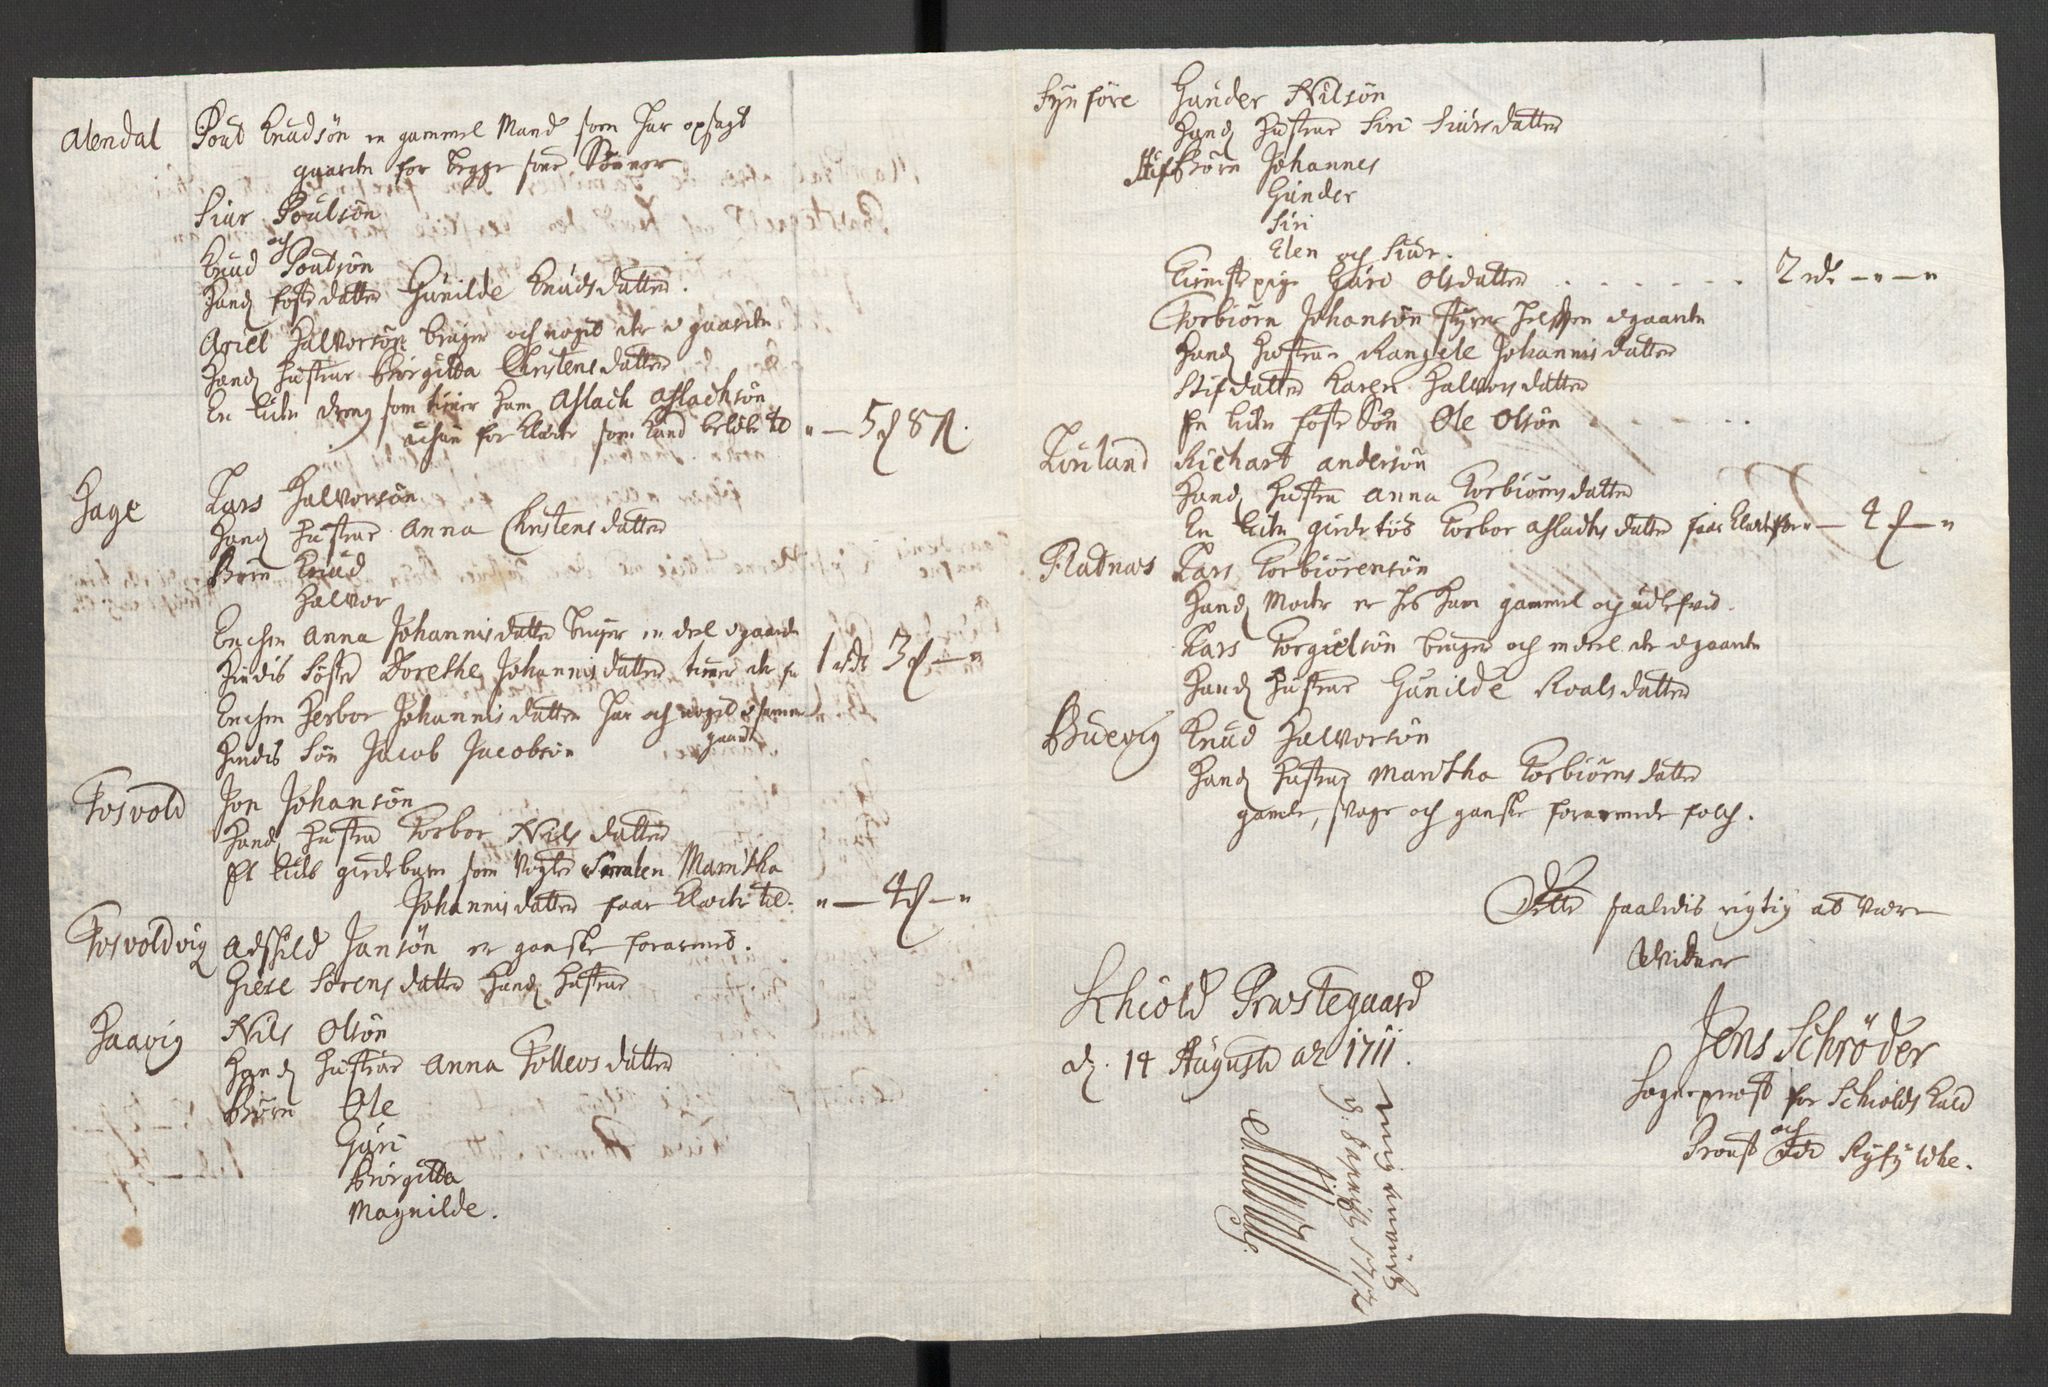 Alendal Poul Knudsön en gammel Mand som har opsagt
gaarden for begge sine Sönner
Siur Poulsön
och
Knud Poulsön
Hands foster datter Gunilde Knuds datter.
Ariel Halvorsön bruger och noget der i gaarden
Hands hustrue Birgitta Christens datter
En liden dreng som tiener ham Aslach Aslachsön
for Klæder som kand beløbe til " — 5 ℳ 8 ß.
Hage Lars Halvorsön
Hands hustrue Anna Christens datter
Börn Knud
Halvor
Enchen Anna Johannis datter bruger en deel i gaarden
Hindis söster Dorethe Johannis datter tiener der for 1 rdr 3 ℳ — "
Enchen Herbor Johannis datter har och noget i samme
gaard
Hindis Sön Jacob Jacobsön
Fosvold Jon Johansön
Hands hustru Torbor Nils datter
Et lidet girdebarn som vogter Smalen Maritha
Johannis datter faar Klæder til. " — 4 ℳ — "
Fosvoldvig Adskild Jansön er ganske forarmed.
Giese Sörens datter Hands hustrue
Haavig Nils Olsön
Hands hustrue Anna Tollevs datter
Börn Ole
Guri
Birgitta
Magnilde.
Fynföre Gunder Nilsön
Hands hustrue Siri Siurs datter
Stifbörn Johannes
Gunder
Siri
Elen och Siur.
Tieniste pige Guro Olsdatter . . . . . . . 2 rdr — " — "
Torbiörn Johansön styrer helften i gaarden
Hands hustrue Rangele Johannis datter
Stifdatter Karen Halvors datter
En liden foster Sön Ole Olsön . . . . .
Richart Andersön
Hands hustru Anna Torbiörns datter
En liden girdetös Torbor Aslachs datter faar Klæder for " — 4 ℳ — "
Fladnæs Lars Torbiörensön
Hands Moder er hos ham gammel och udlefvid.
Lars Torgielsön bruger och endeel der i gaarden
Hands hustrue Gunilde Roals datter
Buevig Knud Halvorsön
Hands hustrue Maritha Torbiörns datter
gamle, svage och ganske forarmede folch.
Dette saaledis rigtig at være
Vidner
Schiold Præstegaard
d. 14 Augusti Ao 1711.
Jens Schröder
Sogneprest for Schiolds Kald
och
Proust udi Ryfylche.